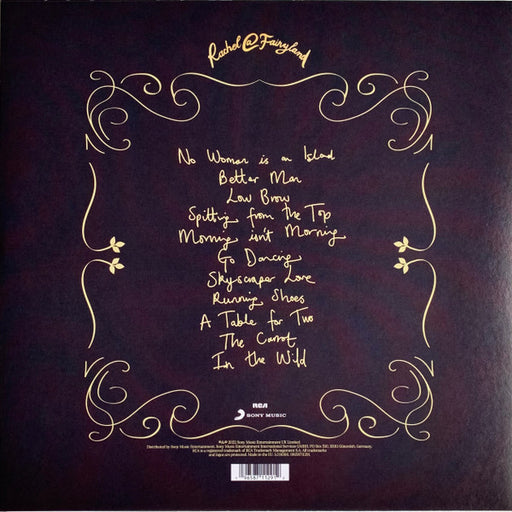 Rachel @ Fairyland
No Woman is an Island
Better Man
Low Brow
Spitting from the Top
Morning isn't Morning
Go Dancing
Skyscraper Love
Running Shoes
A Table for Two
The Carrot
In the Wild
RCA
SONY MUSIC
2022 Sony Music Entertainment UK Limited.
Distributed by Sony Music Entertainment. Sony Music Entertainment International Services GmbH, PO Box 510, 33311 Gütersloh, Germany.
RCA is a registered trademark of RCA Trademark Management S.A. All trademarks
and logos are protected. Made in the EU.